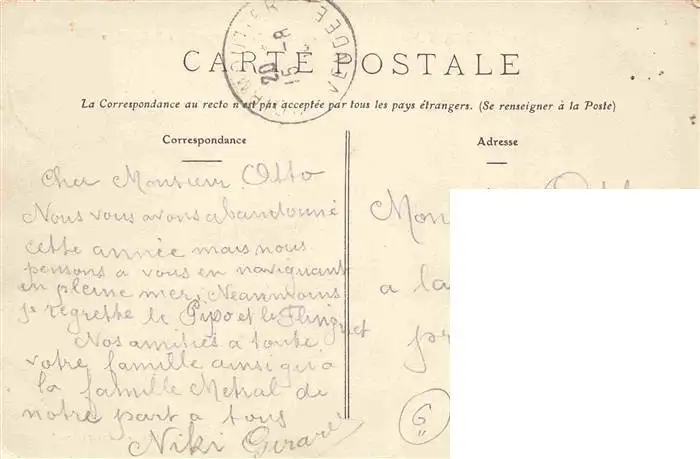 CARTE POSTALE
La Correspondance au recto n'est pas acceptée par tous les pays étrangers. (Se renseigner à la Poste)
Correspondance
Adresse
VENDEE
20 - 8
15
Cher Monsieur Otto
Nous vous avons abandonné
cette année mais nous
pensons a vous en naviguant
en pleine mer, Neanmoins
je regrette le Pipo et le Flinguet
Nos amitiés a toute
votre famille ainsi qu'a
la famille Metral de
notre part a tous
Niki Girard
Mon
a la
pr
6